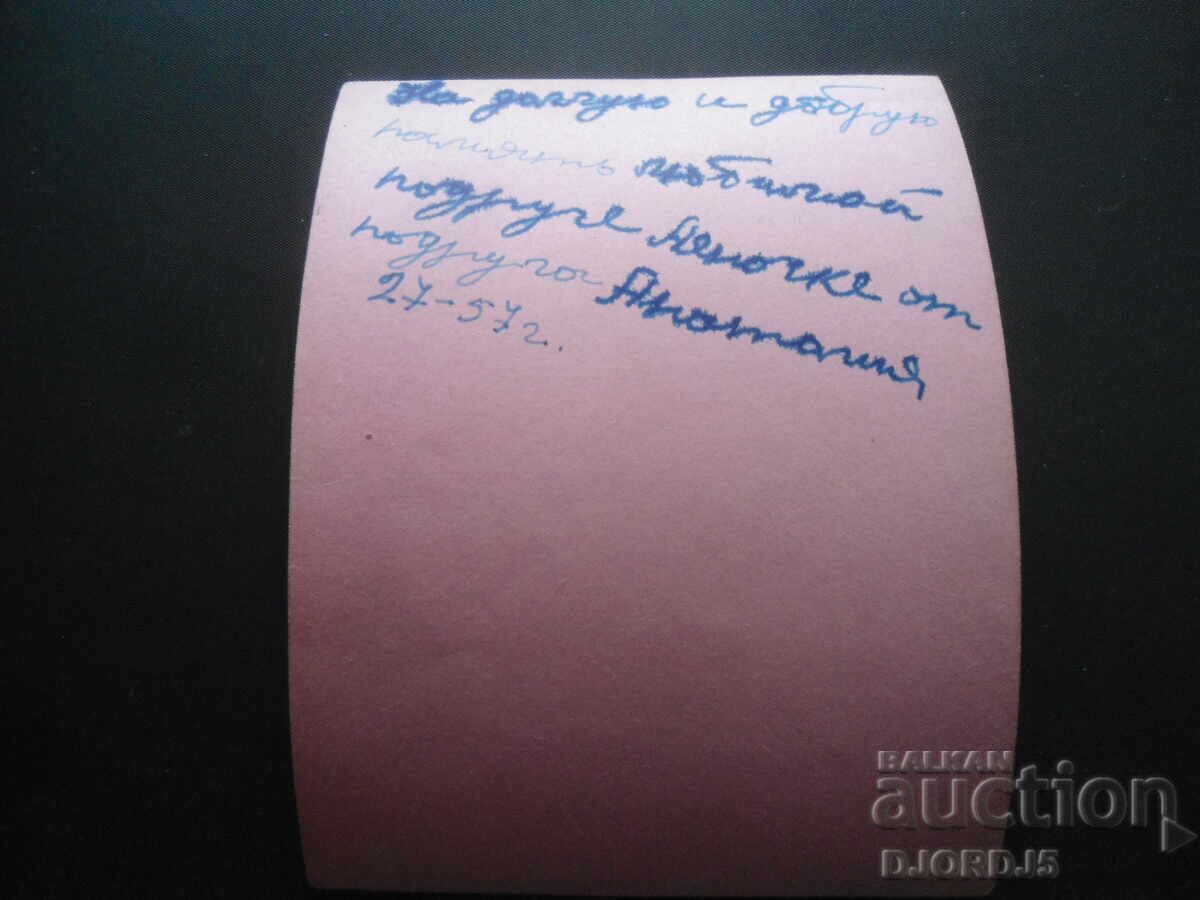 На долгую и добрую
память любимой
подруге Леночке от
подруги Анатолия
27-57г..
BALKAN
auction
DJORDJ5